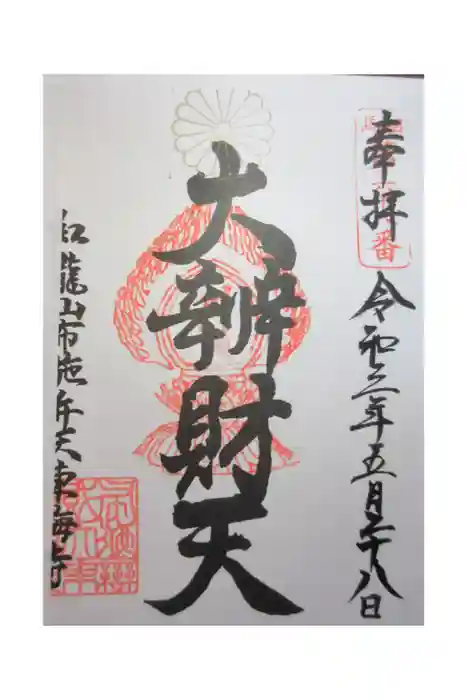 奉拝
令和三年五月二十八日
大辨財天
紅龍山布施弁天東海寺